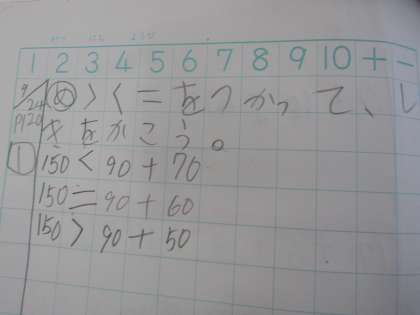 1 2 3 4 5 6 7 8 9 10 + −
9/24 め > < = をつかって、し
P120 きをかこう。
1 150 < 90 + 70
150 = 90 + 60
150 > 90 + 50